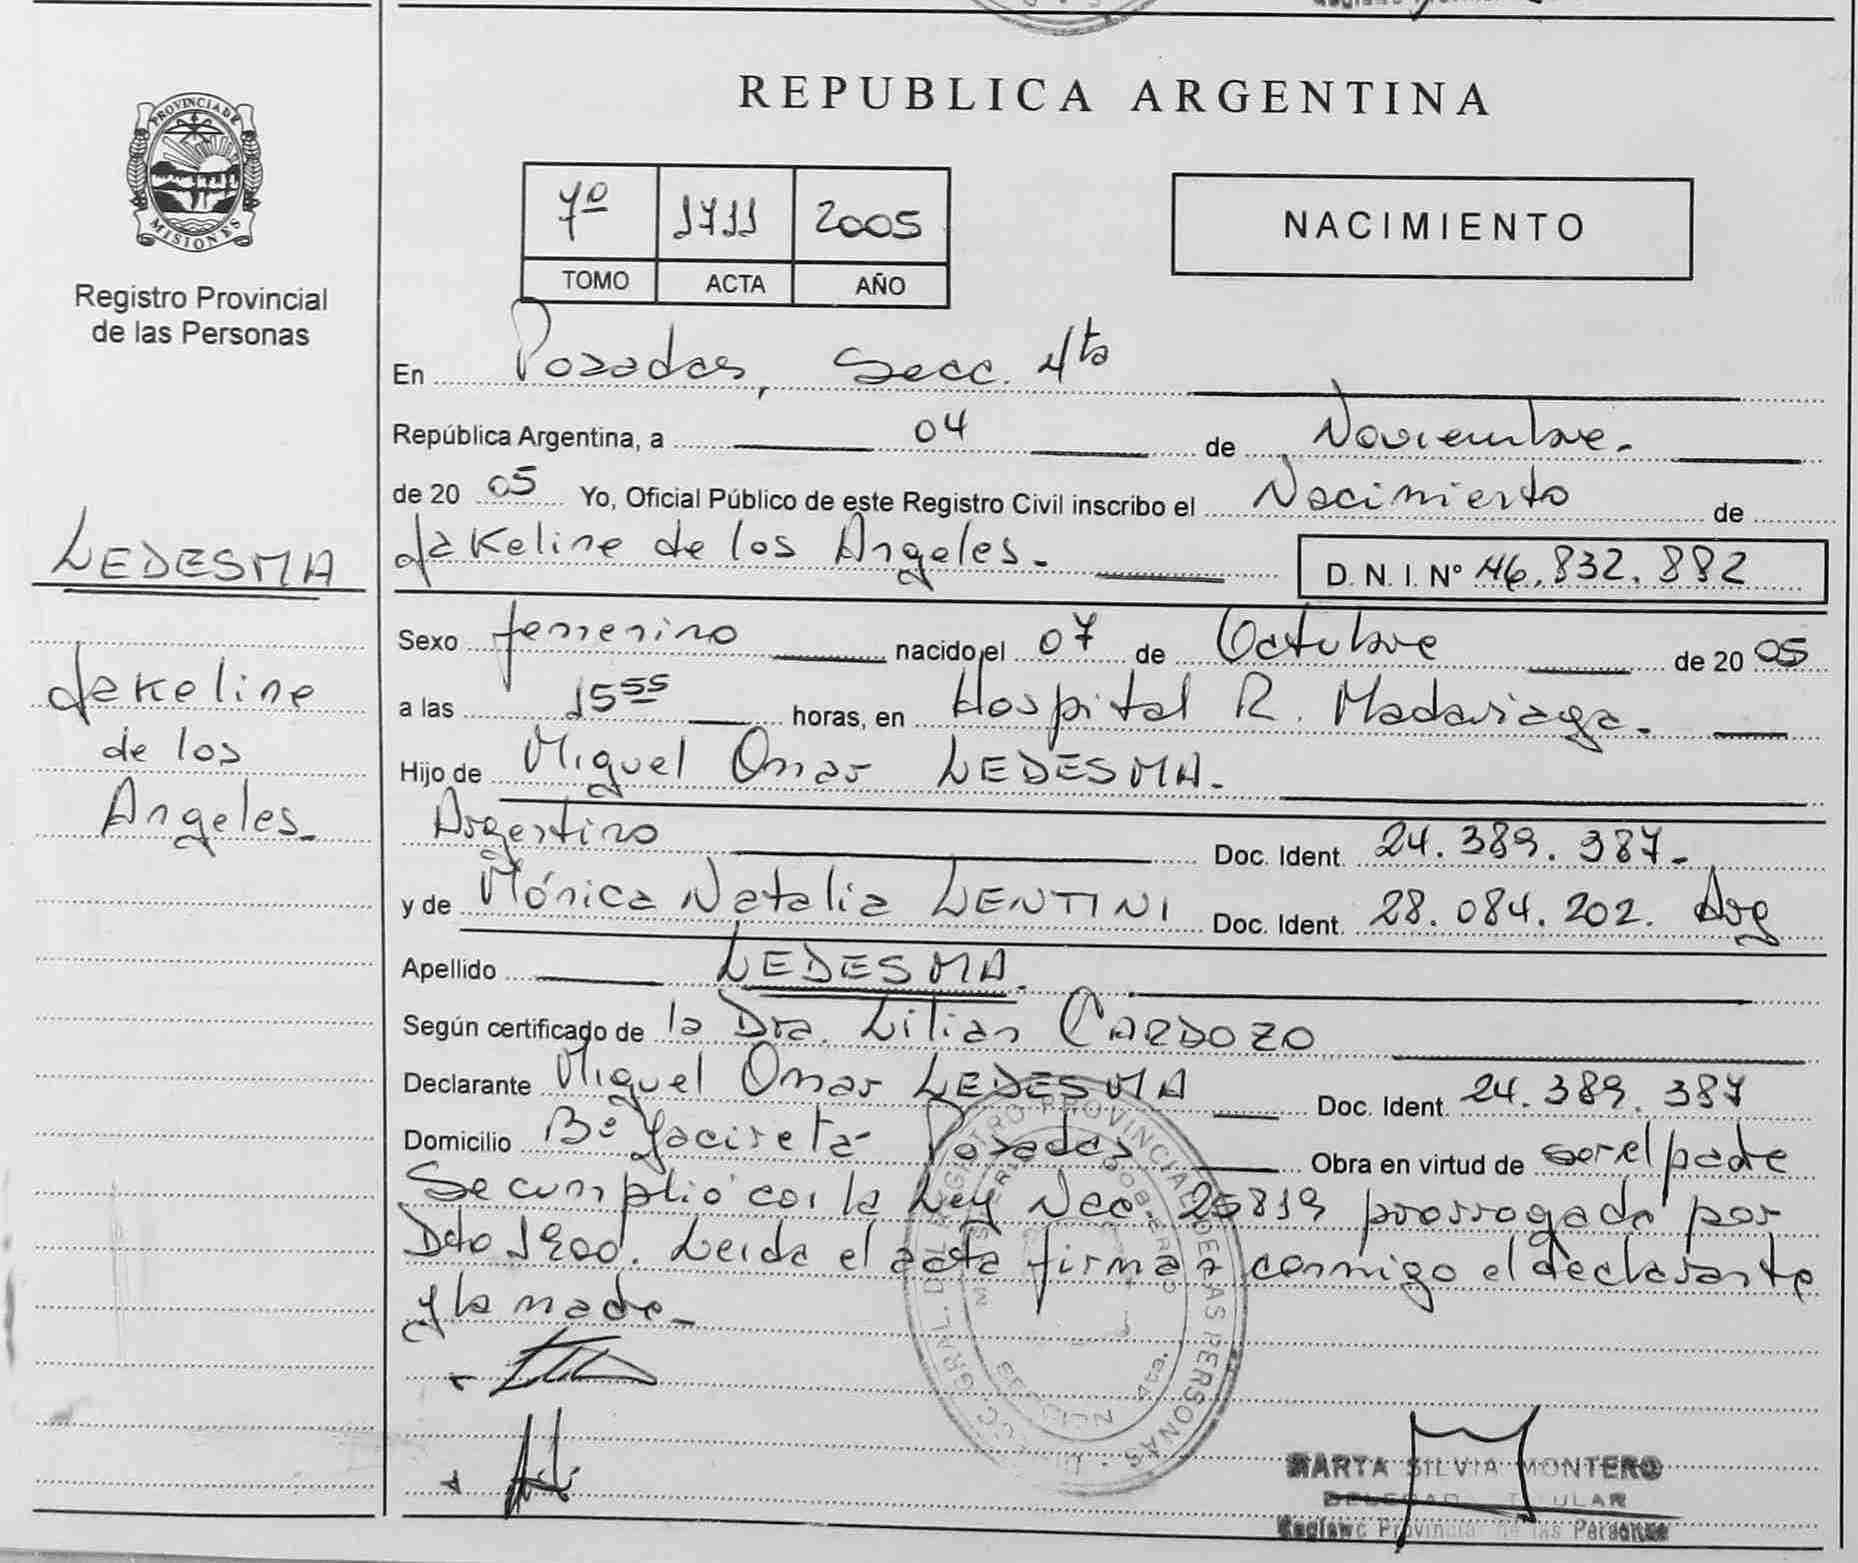 REPUBLICA ARGENTINA
PROVINCIA DE
MISIONES
Registro Provincial
de las Personas
7º 1711 2005
TOMO ACTA AÑO
NACIMIENTO
En Posadas, Secc. 4ta
República Argentina, a 04 de Noviembre.
de 20 05 Yo, Oficial Público de este Registro Civil inscribo el Nacimiento de
Jakeline de los Angeles.
D. N. I. Nº 46.832.882
LEDESMA
Jakeline
de los
Angeles.
Sexo femenino nacido el 07 de Octubre de 20 05
a las 15 55 horas, en Hospital R. Madariaga.
Hijo de Miguel Omar LEDESMA.
Argentino Doc. Ident. 24.389.387.
y de Mónica Natalia LENTINI Doc. Ident. 28.084.202. Arg
Apellido LEDESMA.
Según certificado de la Dra. Lilian CARDOZO
Declarante Miguel Omar LEDESMA Doc. Ident. 24.389.387
Domicilio Bº Yacireta Posadas Obra en virtud de ser el padre
Se cumplió con la Ley Nac. 25819 prorrogada por
Dto 1900. Leida el acta firman conmigo el declarante
y la madre
REGISTRO PROVINCIAL DE LAS PERSONAS
MARTA SILVIA MONTERO
DELEGADA TITULAR
Registro Provincial de las Personas